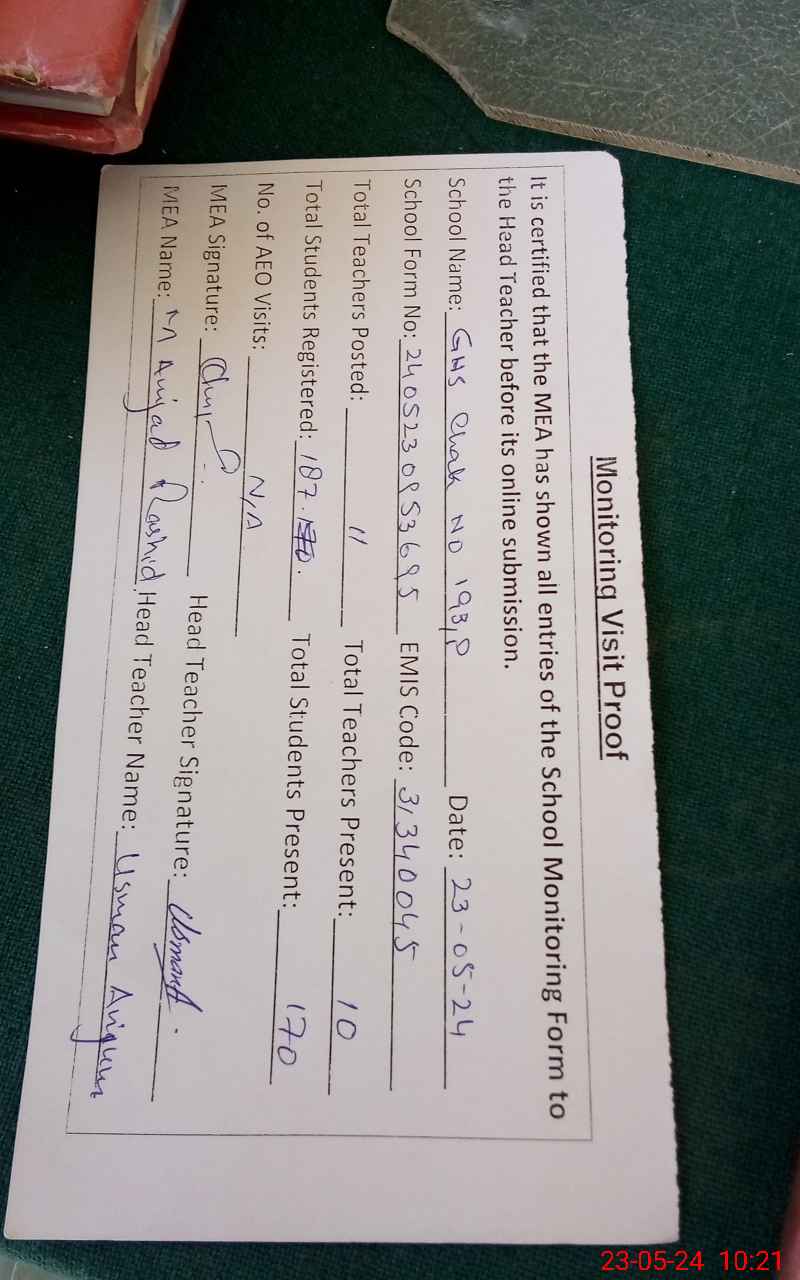 Monitoring Visit Proof
It is certified that the MEA has shown all entries of the School Monitoring Form to
the Head Teacher before its online submission.
School Name: GHS Chak No 193,P Date: 23-05-24
School Form No: 2405230953695 EMIS Code: 31340045
Total Teachers Posted: 11 Total Teachers Present: 10
Total Students Registered: 187. Total Students Present: 170
No. of AEO Visits: N/A
MEA Signature: Head Teacher Signature: Usman
MEA Name: M Amjad Rashid Head Teacher Name: Usman Anjum
23-05-24 10:21